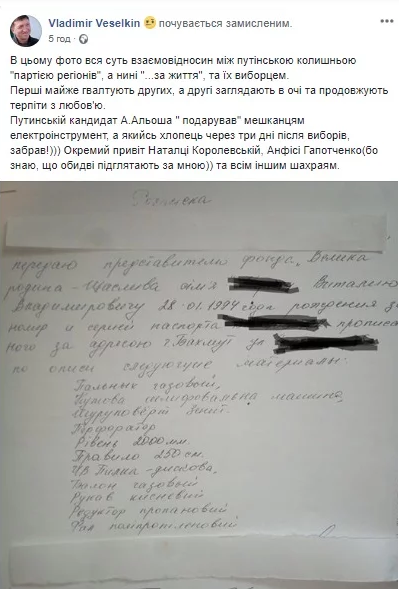 Vladimir Veselkin почувається замисленим.
5 год ·
В цьому фото вся суть взаємовідносин між путінською колишньою
"партією регіонів", а нині "...за життя", та їх виборцем.
Перші майже гвалтують других, а другі заглядають в очі та продовжують
терпіти з любов'ю.
Путинський кандидат А.Альоша " подарував" мешканцям
електроінструмент, а якийсь хлопець через три дні після виборів,
забрав!))) Окремий привіт Наталці Королевській, Анфісі Гапотченко(бо
знаю, що обидві підглятають за мною)) та всім іншим шахраям.
Розписка
передаю представителю фонда „Велика
родина - Щаслива сім'я Виталию
Владимировичу 28.01.1994 года рождения за
номер и серией паспорта прописа
ного за адресою г. Бахмут ул
по описи следующие материалы:
Пальник газовый,
Кутова шліфовальна машина,
Шуруповёрт Зенит.
Перфоратор
Рівень 2000 мм.
Правило 250 см.
Пилка - дискова.
Балон газовый
Рукав кисневий
Редуктор пропановий
Фан